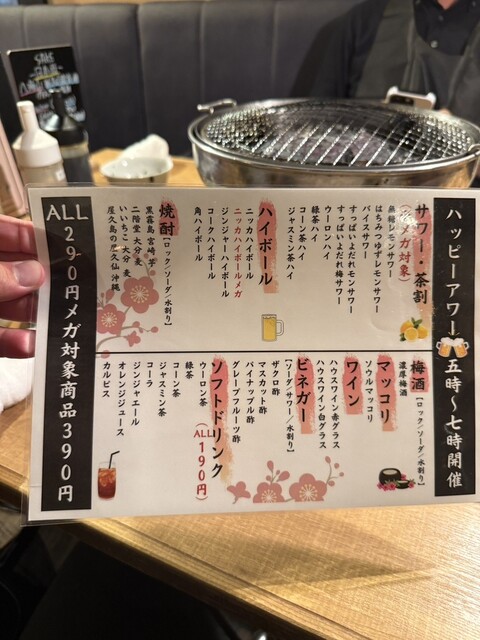 ハッピーアワー 五時〜七時開催
サワー・茶割
(メガ対象)
無糖レモンサワー
はちみつゆずレモンサワー
バイスサワー
すっぱいよだれモンサワー
すっぱいよだれ梅サワー
ウーロンハイ
緑茶ハイ
コーン茶ハイ
ジャスミン茶ハイ
ハイボール
ニッカハイボール
ニッカハイボールメガ
ジンジャーハイボール
コークハイボール
角ハイボール
焼酎【ロック/ソーダ/水割り】
黒霧島 宮崎 芋
二階堂 大分 麦
いいちこ 大分 麦
屋久島の屋久仙 沖縄
梅酒【ロック/ソーダ/水割り】
濃厚梅酒
マッコリ
ソウルマッコリ
ワイン
ハウスワイン赤グラス
ハウスワイン白グラス
ビネガー
【ソーダ/サワー/水割り】
ザクロ酢
マスカット酢
パイナップル酢
グレープフルーツ酢
ソフトドリンク
(ALL190円)
ウーロン茶
緑茶
コーン茶
ジャスミン茶
コーラ
ジンジャエール
オレンジジュース
カルピス
ALL290円メガ対象商品390円